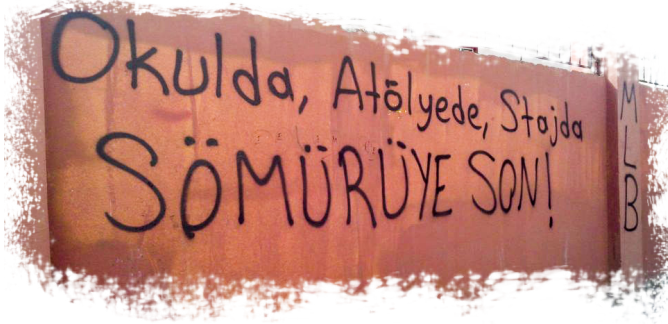 Okulda, Atölyede, Stajda
SÖMÜRÜYE SON!
MLB